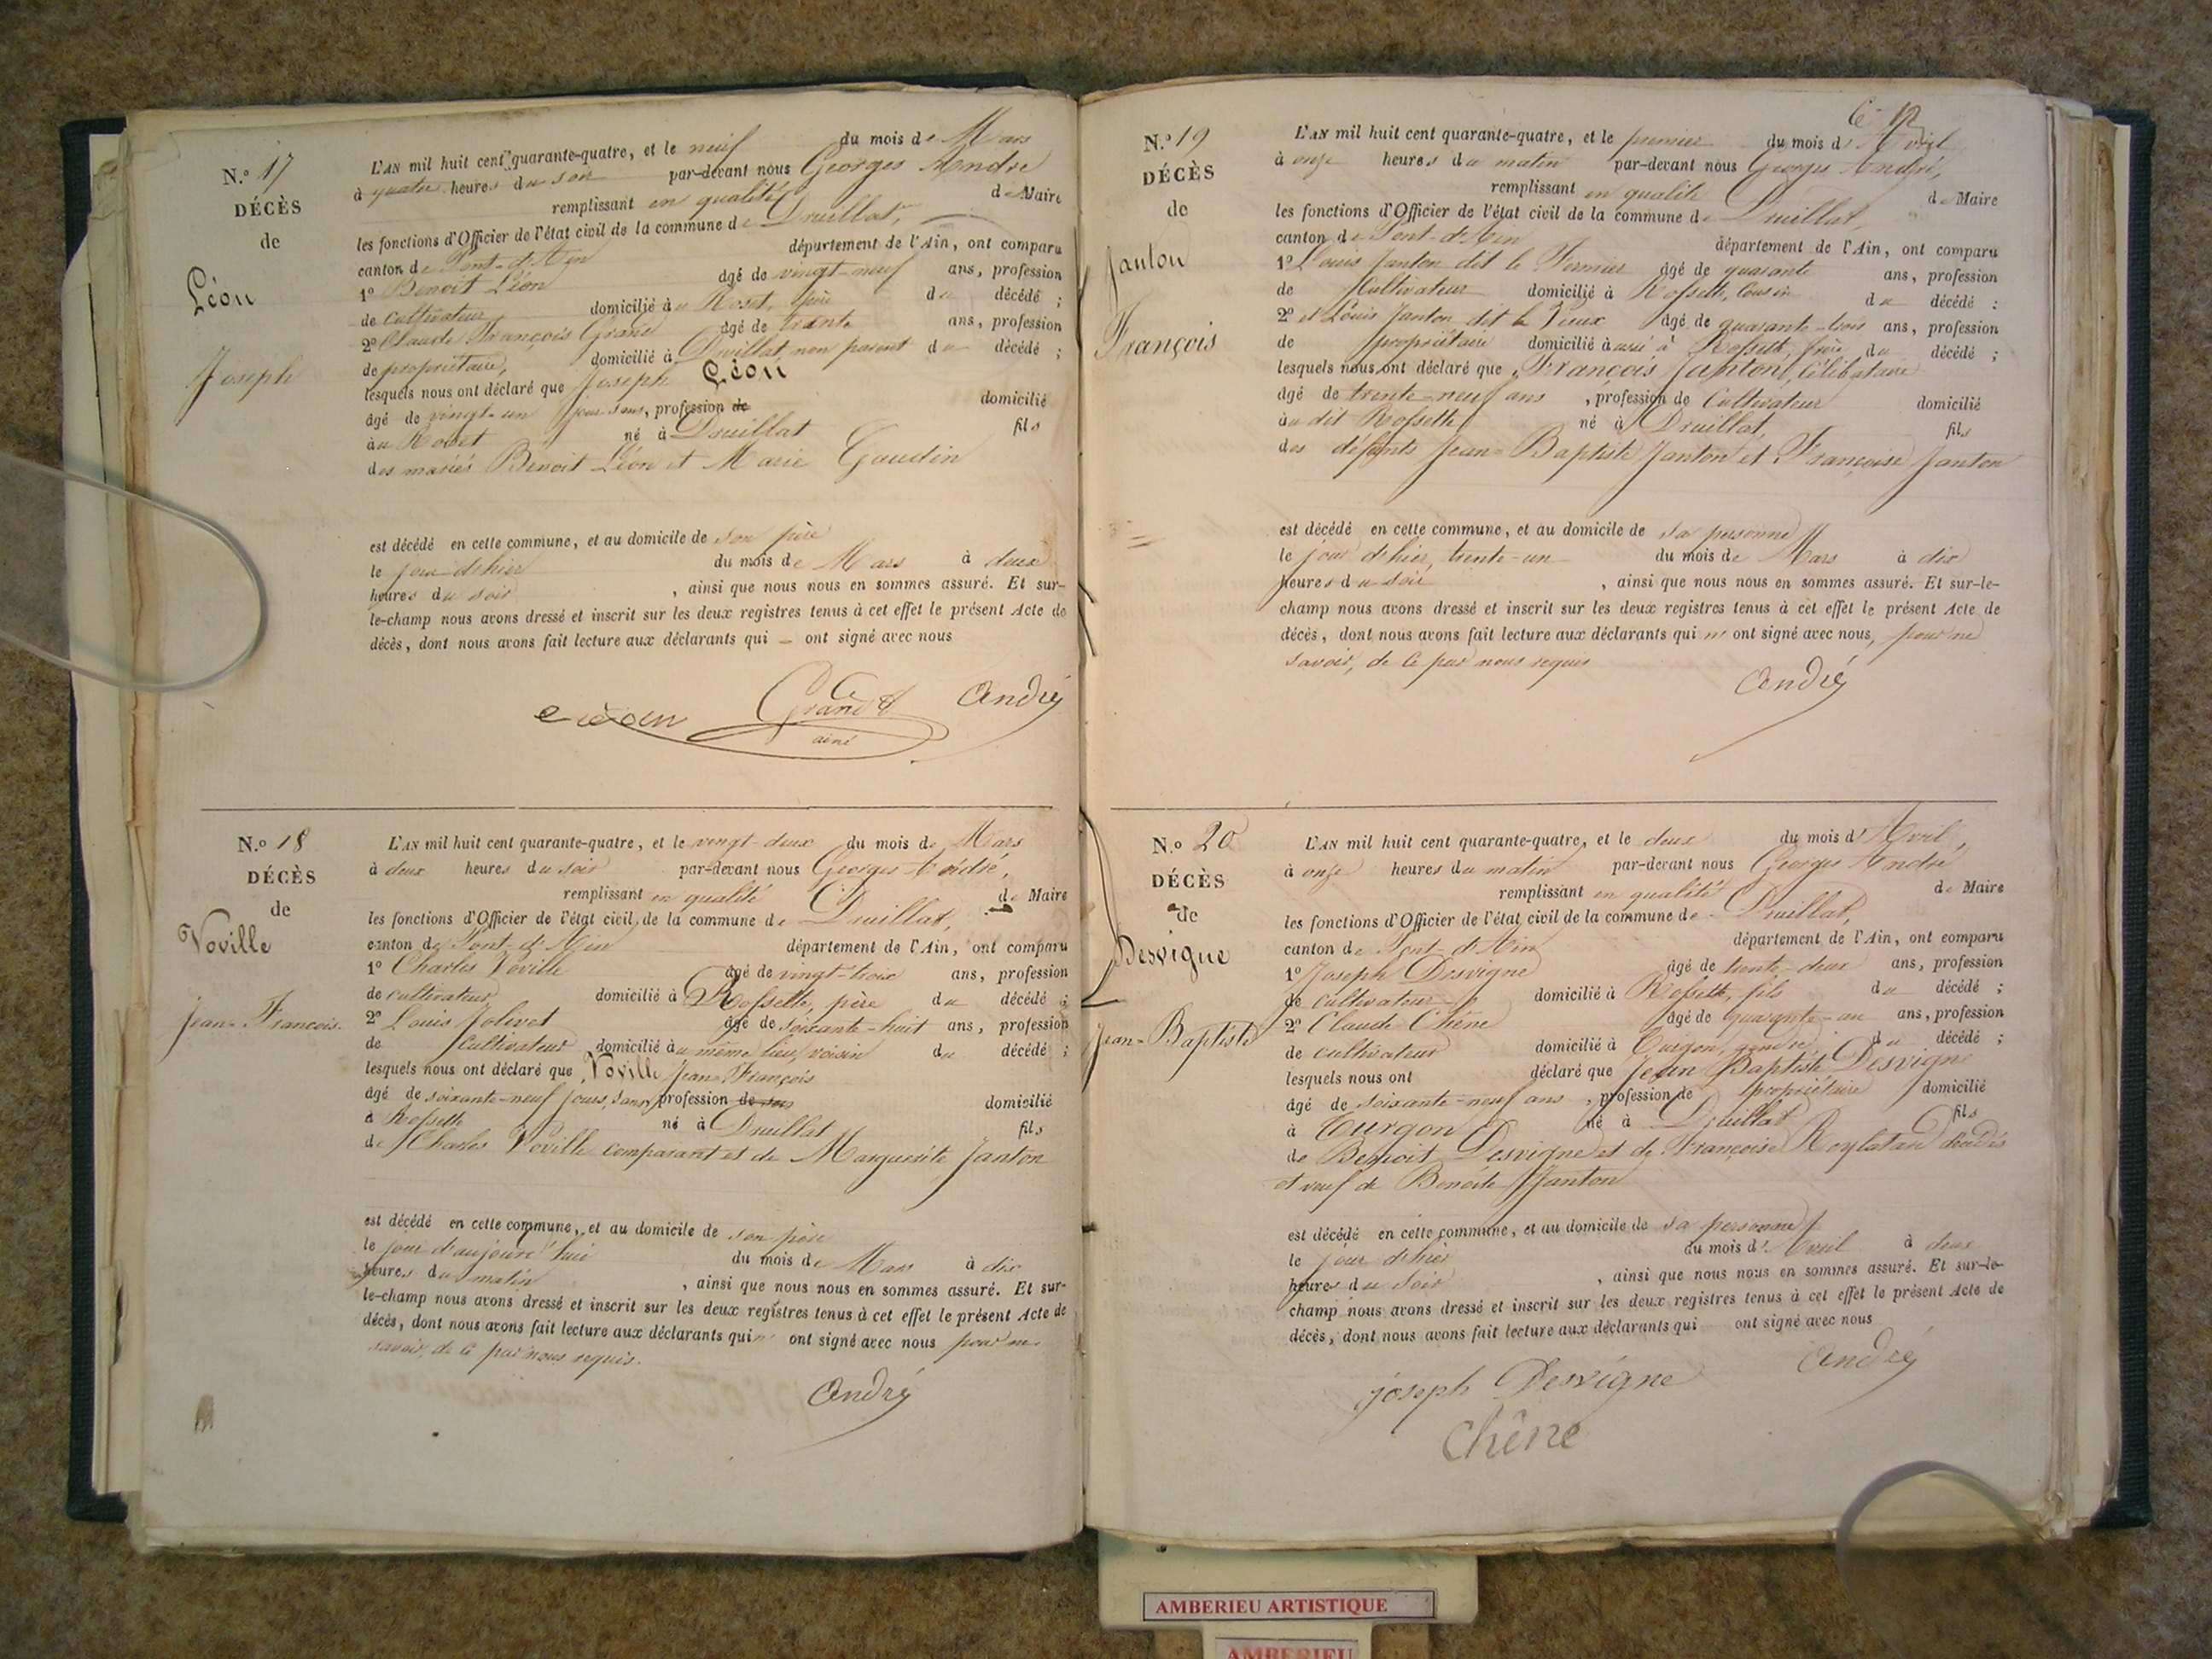 N.º 17
DÉCÈS
de
Léon
Joseph
L'AN mil huit cent quarante-quatre, et le neuf du mois de Mars
à quatre heures du soir par-devant nous Georges André
remplissant en qualité de Maire
les fonctions d'Officier de l'état civil de la commune de Druillat,
canton de Pont-d'Ain département de l'Ain, ont comparu
1º Benoit Léon âgé de vingt-neuf ans, profession
de cultivateur domicilié au Roset, père du décédé ;
2º Claude François Grand âgé de trente ans, profession
de propriétaire, domicilié à Druillat, non parent du décédé ;
lesquels nous ont déclaré que Joseph Léon
âgé de vingt-un jour sans, profession de domicilié
au Roset né à Druillat fils
des mariés Benoit Léon et Marie Gaudin
est décédé en cette commune, et au domicile de son père
le jour d'hier du mois de Mars à deux
heures du soir , ainsi que nous nous en sommes assuré. Et sur-
le-champ nous avons dressé et inscrit sur les deux registres tenus à cet effet le présent Acte de
décès, dont nous avons fait lecture aux déclarants qui ont signé avec nous
Grand André
ainé
N.º 18
DÉCÈS
de
Voville
Jean-François.
L'AN mil huit cent quarante-quatre, et le vingt-deux du mois de Mars
à deux heures du soir par-devant nous Georges André,
remplissant en qualité de Maire
les fonctions d'Officier de l'état civil de la commune de Druillat,
canton de Pont-d'Ain département de l'Ain, ont comparu
1º Charles Voville âgé de vingt-trois ans, profession
de cultivateur domicilié à Rossette, père du décédé ;
2º Louis Jolivet âgé de soixante-huit ans, profession
de cultivateur domicilié au même lieu, voisin du décédé ;
lesquels nous ont déclaré que Voville Jean-François
âgé de soixante-neuf jours, sans profession de domicilié
à Rossette né à Druillat fils
de Charles Voville comparant et de Marguerite Janton
est décédé en cette commune, et au domicile de son père
le jour d'aujourd'hui du mois de Mars à dix
heures du matin , ainsi que nous nous en sommes assuré. Et sur-
le-champ nous avons dressé et inscrit sur les deux registres tenus à cet effet le présent Acte de
décès, dont nous avons fait lecture aux déclarants qui n' ont signé avec nous pour ne
savoir, de ce par nous requis.
André
N.º 19
DÉCÈS
de
Janton
François
L'AN mil huit cent quarante-quatre, et le premier du mois d'Avril
à onze heures du matin par-devant nous Georges André,
remplissant en qualité de Maire
les fonctions d'Officier de l'état civil de la commune de Druillat,
canton de Pont-d'Ain département de l'Ain, ont comparu
1º Louis Janton dit le Fermier âgé de quarante ans, profession
de Cultivateur domicilié à Rossette, Cousin du décédé :
2º et Louis Janton dit le Vieux âgé de quarante-trois ans, profession
de propriétaire domicilié aussi à Rossette, frère du décédé ;
lesquels nous ont déclaré que François Janton, Célibataire
âgé de trente-neuf ans , profession de Cultivateur domicilié
au dit Rossette né à Druillat, fils
des défunts Jean-Baptiste Janton et Françoise Janton
est décédé en cette commune, et au domicile de sa personne
le jour d'hier, trente-un du mois de Mars à dix
heures du soir , ainsi que nous nous en sommes assuré. Et sur-le-
champ nous avons dressé et inscrit sur les deux registres tenus à cet effet le présent Acte de
décès, dont nous avons fait lecture aux déclarants qui n' ont signé avec nous, pour ne
savoir, de ce par nous requis
André
N.º 20
DÉCÈS
de
Desvigne
Jean-Baptiste
L'AN mil huit cent quarante-quatre, et le deux du mois d'Avril,
à onze heures du matin par-devant nous Georges André
remplissant en qualité de Maire
les fonctions d'Officier de l'état civil de la commune de Druillat,
canton de Pont-d'Ain département de l'Ain, ont comparu
1º Joseph Desvigne âgé de trente-deux ans, profession
de cultivateur domicilié à Rossette, fils du décédé ;
2º Claude Chêne âgé de quarante-un ans, profession
de cultivateur domicilié à Turgon, gendre du décédé ;
lesquels nous ont déclaré que Jean Baptiste Desvigne
âgé de soixante-neuf ans , profession de propriétaire domicilié
à Turgon né à Druillat fils
de Benoit Desvigne et de Françoise décédés
et veuf de Benoite Janton
est décédé en cette commune, et au domicile de sa personne
le jour d'hier du mois d'Avril à deux
heures du soir , ainsi que nous nous en sommes assuré. Et sur-le-
champ nous avons dressé et inscrit sur les deux registres tenus à cet effet le présent Acte de
décès, dont nous avons fait lecture aux déclarants qui ont signé avec nous
André
joseph Desvigne
Chêne
AMBERIEU ARTISTIQUE
AMBERIEU